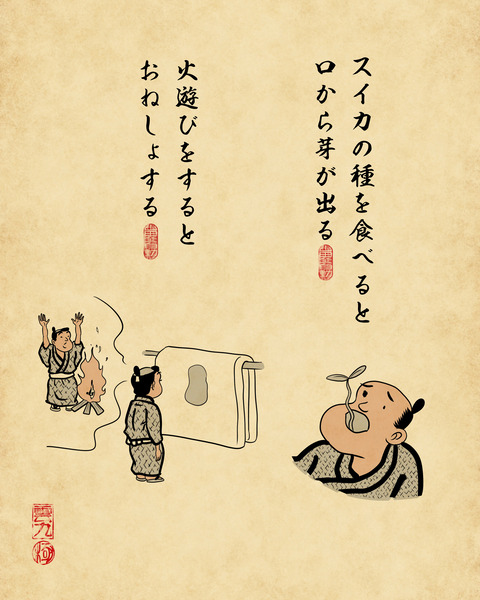 スイカの種を食べると
口から芽が出る
火遊びをすると
おねしょする